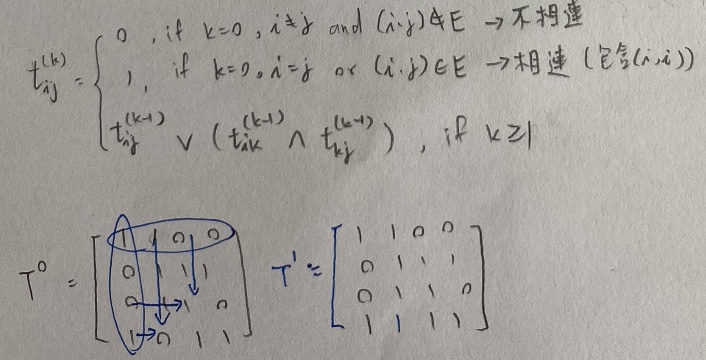 t_{ij}^{(k)} = { 0 , if k=0 , i≠j and (i.j)∉E → 不相連
1 , if k=0, i=j or (i.j)∈E → 相連 (包含(i,i))
t_{ij}^{(k-1)} ∨ (t_{ik}^{(k-1)} ∧ t_{kj}^{(k-1)}) , if k≥1
T^0 = [ 1 1 0 0 T^1 = [ 1 1 0 0
0 1 1 1 0 1 1 1
0 1 1 0 0 1 1 0
1 0 1 1 ] 1 1 1 1 ]